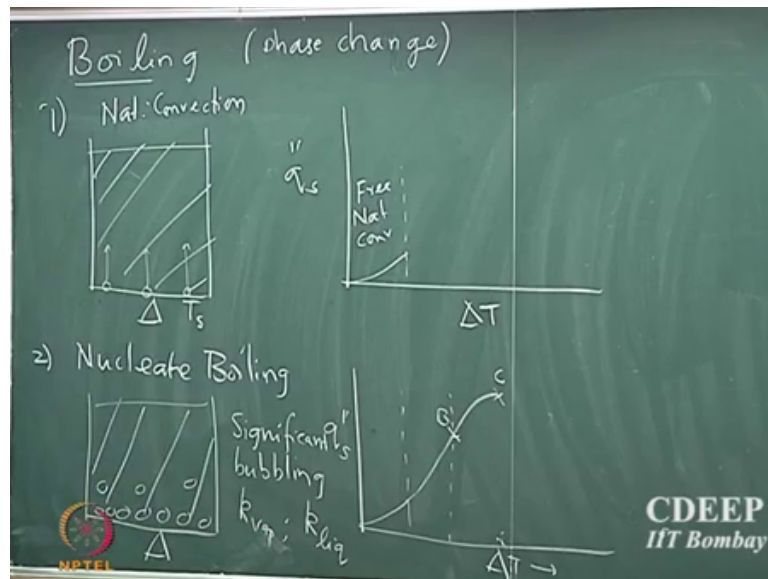 Boiling (phase change)
1) Nat. Convection
q"s
Free
Nat
Conv
Δ Ts
ΔT
2) Nucleate Boiling
Significant
bubbling
kvap ; kliq
q"s
B
C
Δ
ΔT →
NPTEL
CDEEP
IIT Bombay